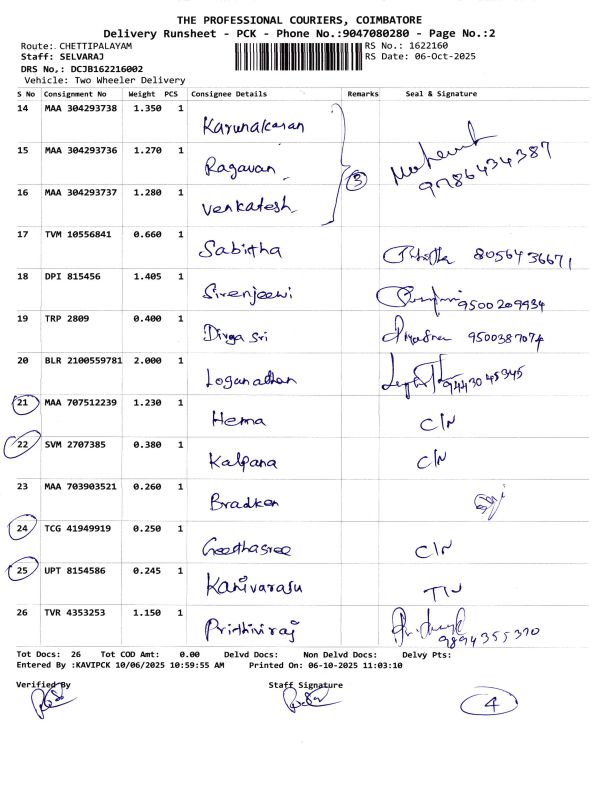 THE PROFESSIONAL COURIERS, COIMBATORE
Delivery Runsheet - PCK - Phone No.:9047080280 - Page No.:2
Route: CHETTIPALAYAM RS No.: 1622160
Staff: SELVARAJ RS Date: 06-Oct-2025
DRS No,: DCJB162216002
Vehicle: Two Wheeler Delivery
S No Consignment No Weight PCS Consignee Details Remarks Seal & Signature
14 MAA 304293738 1.350 1 Karunakaran
15 MAA 304293736 1.270 1 Ragavan 3 9786434387
16 MAA 304293737 1.280 1 Venkatesh
17 TVM 10556841 0.660 1 Sabitha 8056436671
18 DPI 815456 1.405 1 Sirenjeevi 9500209934
19 TRP 2809 0.400 1 Divya Sri 9500387074
20 BLR 2100559781 2.000 1 Loganathan 9443045345
21 MAA 707512239 1.230 1 Hema C/N
22 SVM 2707385 0.380 1 Kalpana C/N
23 MAA 703903521 0.260 1 Bradken
24 TCG 41949919 0.250 1 Geethasree C/N
25 UPT 8154586 0.245 1 Kanivarasu
26 TVR 4353253 1.150 1 Prithiviraj 9894355370
Tot Docs: 26 Tot COD Amt: 0.00 Delvd Docs: Non Delvd Docs: Delvy Pts:
Entered By :KAVIPCK 10/06/2025 10:59:55 AM Printed On: 06-10-2025 11:03:10
Verified By Staff Signature
4